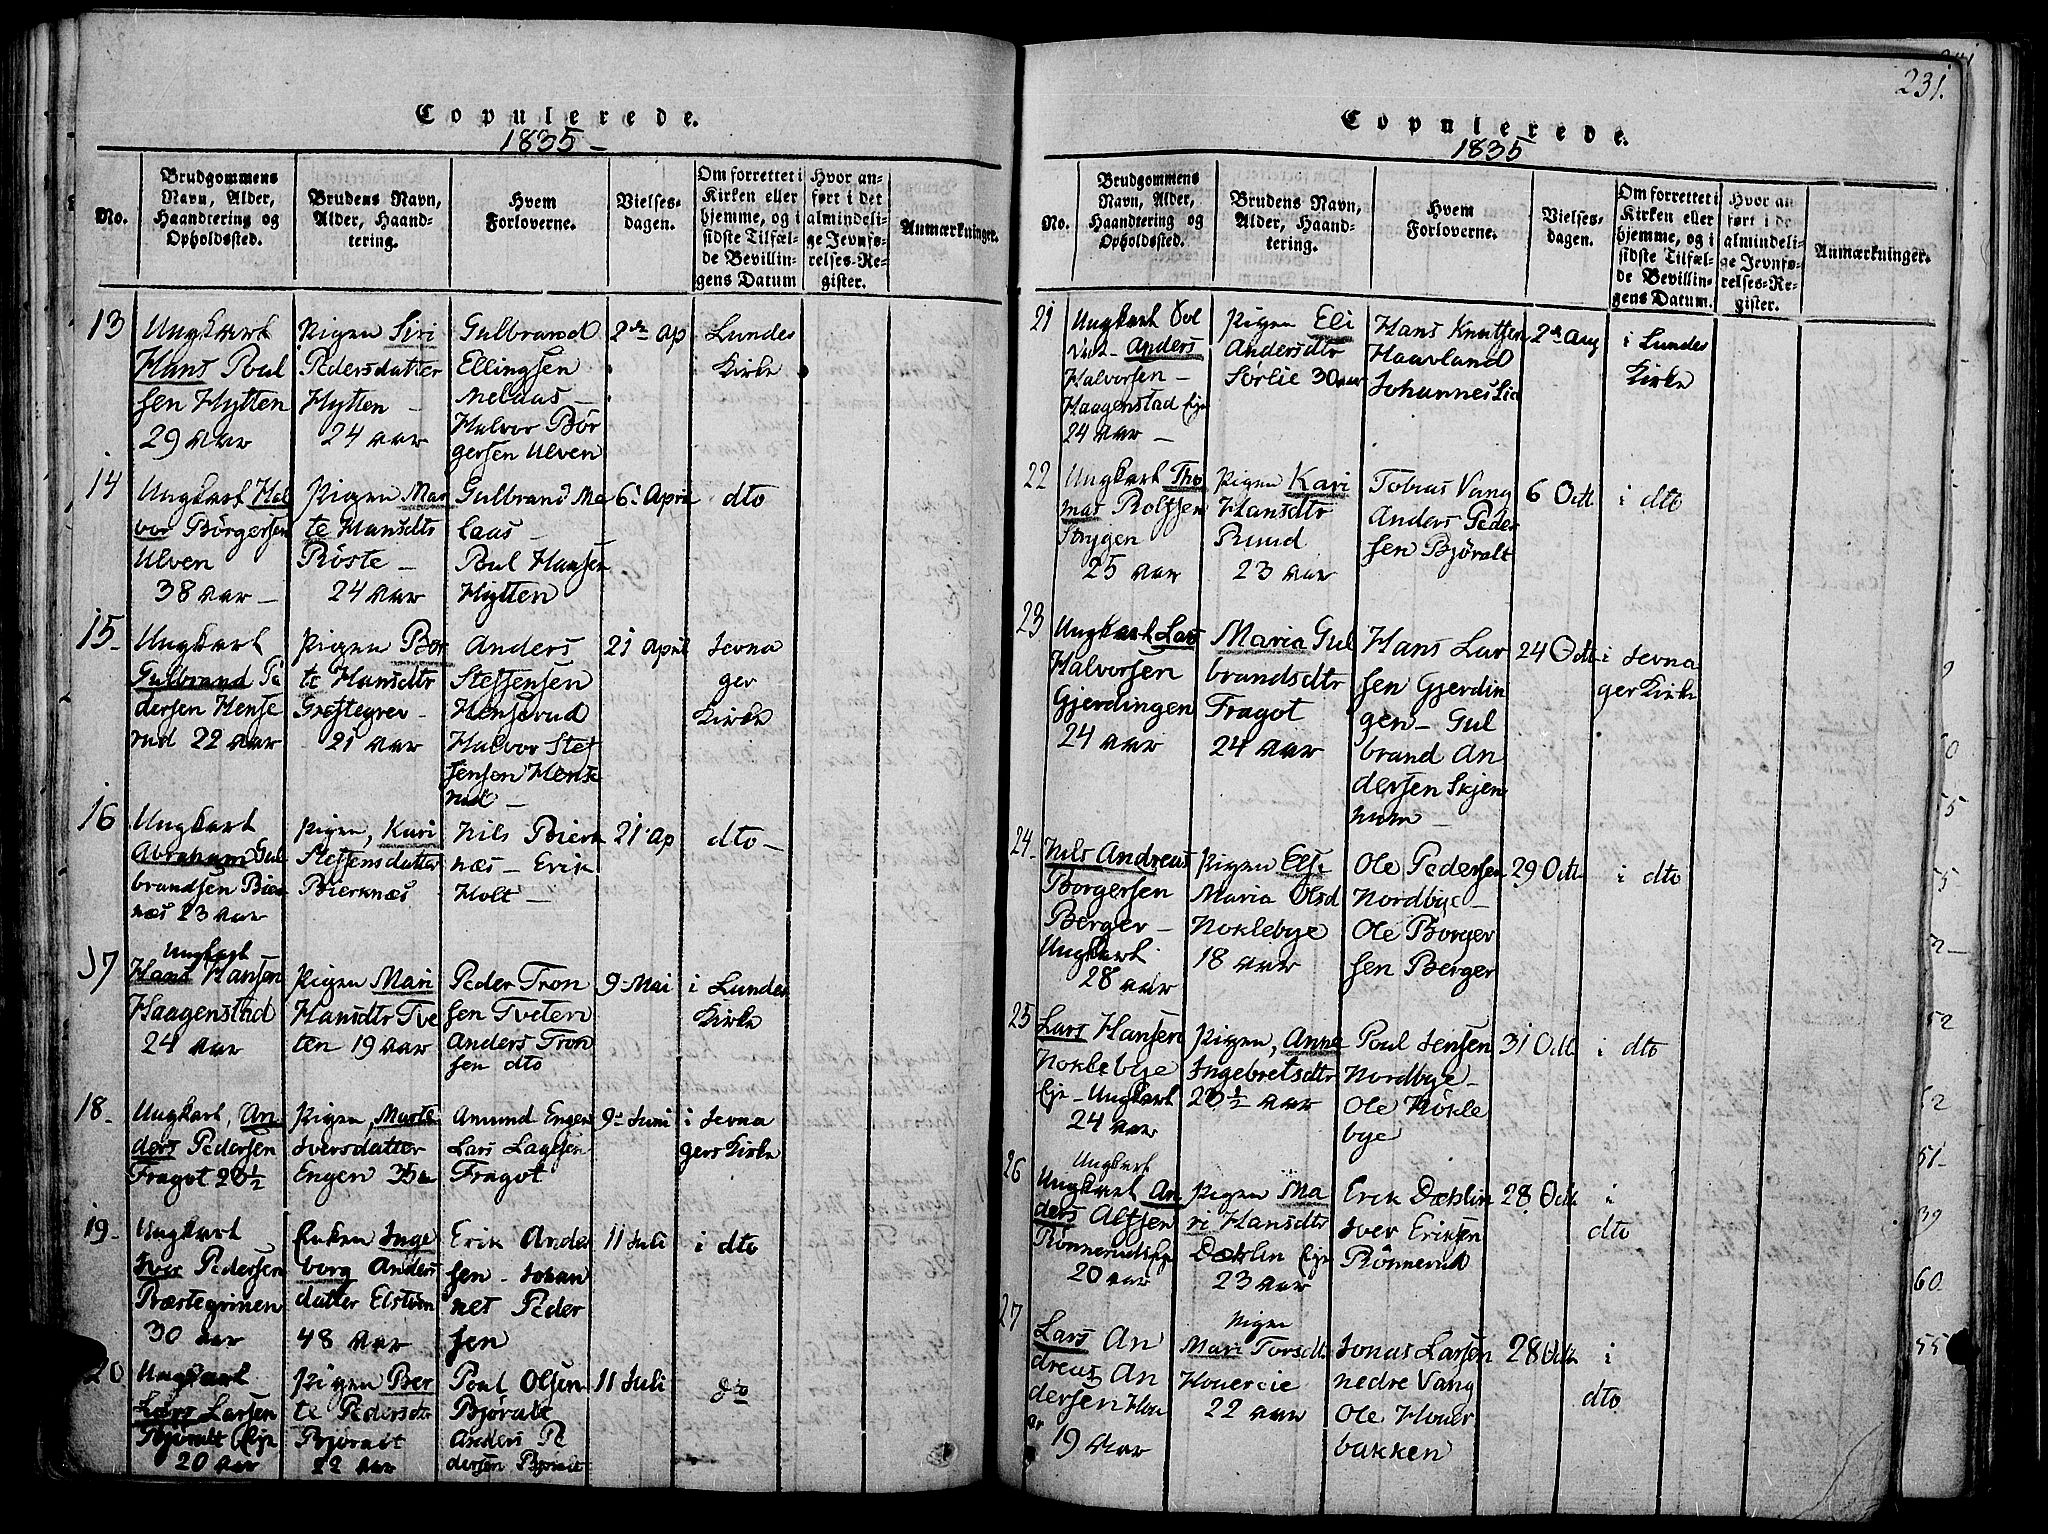 Copulerede.
1835 -
No.
Brudgommens
Navn, Alder,
Haandtering og
Opholdssted.
Brudens Navn,
Alder, Haand-
tering.
Hvem
Forloverne.
Vielses-
dagen.
Om forrettet i
Kirken eller
hjemme, og i
sidste Tilfæl-
de Bevillin-
gens Datum
Hvor an-
ført i det
almindeli-
ge Jevnfø-
relses-Re-
gister.
Anmærkninger.
13
Ungkarl
Hans Poul
sen Hytten
29 Aar
Pigen Siri
Pedersdatter
Hytten -
24 Aar
Gulbrand
Ellingsen
Melaas -
Halvor Bör
gersen Ulven
2de Ap
Lundes
Kirke
14
Ungkarl Hal
vor Börgersen
Ulven
38 Aar -
Pigen Mar
te Hansdtr
Röste -
24 Aar
Gulbrand Me
laas -
Poul Hansen
Hytten
6. April
dto
15-
Ungkarl
Gulbrand Pe
dersen Hense
rud 22 Aar
Pigen Ber
te Hansdtr
Græstegrev -
21 Aar
Anders
Steffensen
Henserud
Halvor Stef
fensen Hense
rud -
21 April
Jevna
ger
Kirke
16
Ungkarl
Abraham Gul
brandsen Bier
næs 23 Aar
Pigen, Kari
Steffensdatter
Bierknæs
Nils Bierk
næs - Erik
Holt -
21. Ap
dto -
17
Ungkarl
Hans Hansen
Haagenstad
24 Aar
Pigen Mari
Hansdtr Tve
ten 19 Aar
Peder Tron
sen Tveten
Anders Tron
sen dto
9. Mai
i Lundes
Kirke
18-
Ungkarl, An-
ders Pedersen
Fragot 23½
Pigen, Marte
Iversdatter
Engen 35 a
Amund Engen
Lars Lagesen
Fragot
9. Juni
i Jevna
gers Kirke
19-
Ungkarl
Iver Pedersen
Præstegrinen
30 Aar
Enken Inge
borg Anders
datter Elstöen
48 Aar
Erik Ander
sen - Johan
nes Peder
sen
11 Juli
i dto
20
Ungkarl
Lars Larsen
Björalt Eje
20 Aar
Pigen Ber
te Pedersdtr
Björalt
22 Aar
Poul Olsen
Björalt
Anders Pe
dersen Björalt
11 Juli
do
231.
Copulerede.
1835
No.
Brudgommens
Navn, Alder,
Haandtering og
Opholdssted.
Brudens Navn,
Alder, Haand-
tering.
Hvem
Forloverne.
Vielses-
dagen.
Om forrettet i
Kirken eller
hjemme, og i
sidste Tilfæl-
de Bevillin-
gens Datum.
Hvor an-
ført i de
almindeli-
ge Jevnfø-
relses-Re-
gister.
Anmærkninger.
21
Ungkarl
Anders
Halvorsen -
Haagenstad Eje
24 Aar -
Pigen Eli
Andersdtr
Sörlie 30 Aar
Hans Knutsen
Haavland
Johannes Lie
2de Aug
i Lundes
Kirke
22
Ungkarl Tho
mas Rolfsen
Strygen
25 Aar
Pigen Kari
Hansdtr
Ruud
23 Aar
Tobias Vang
Anders Peder
sen Björalt
6 Octb
i dto
23
Ungkarl Lars
Halvorsen
Gjerdingen
24 Aar
Maria Gul
brandsdtr
Fragot
24 Aar
Hans Lar
sen Gjerdin
gen - Gul
brand An
dersen Skjen
num -
24 Octb
i Jevna
ger Kirke
24-
Nils Andreas
Borgersen
Berger -
Ungkarl
28 Aar
Pigen Else
Maria Olsd
Noklebye
18 Aar
Ole Pedersen
Nordbye -
Ole Borger
sen Berger
29 Octb
i dto
25
Lars Hansen
Noklebye
Eje - Ungkarl
24 Aar
Pigen, Anne
Ingebretsdtr
23½ Aar
Poul Jensen
Nordbye -
Ole Nökle
bye
31 Octb
i dto
26
Ungkarl
Ungkarl An
ders Alfsen
Rönnerudseje
20 Aar
Pigen Ma
ri Hansdtr
Dæhlin Eje
23 Aar
Erik Dæhlin
Iver Eriksen
Rönnerud
28 Octb
i
dto
27
Lars An
dreas An
dersen Hou
er 19 Aar
Pigen
Mari Torsdtr
Houereie
22 Aar
Jonas Larsen
nedre Vang
Ole Houer
bakken
28 Octb
i
dto